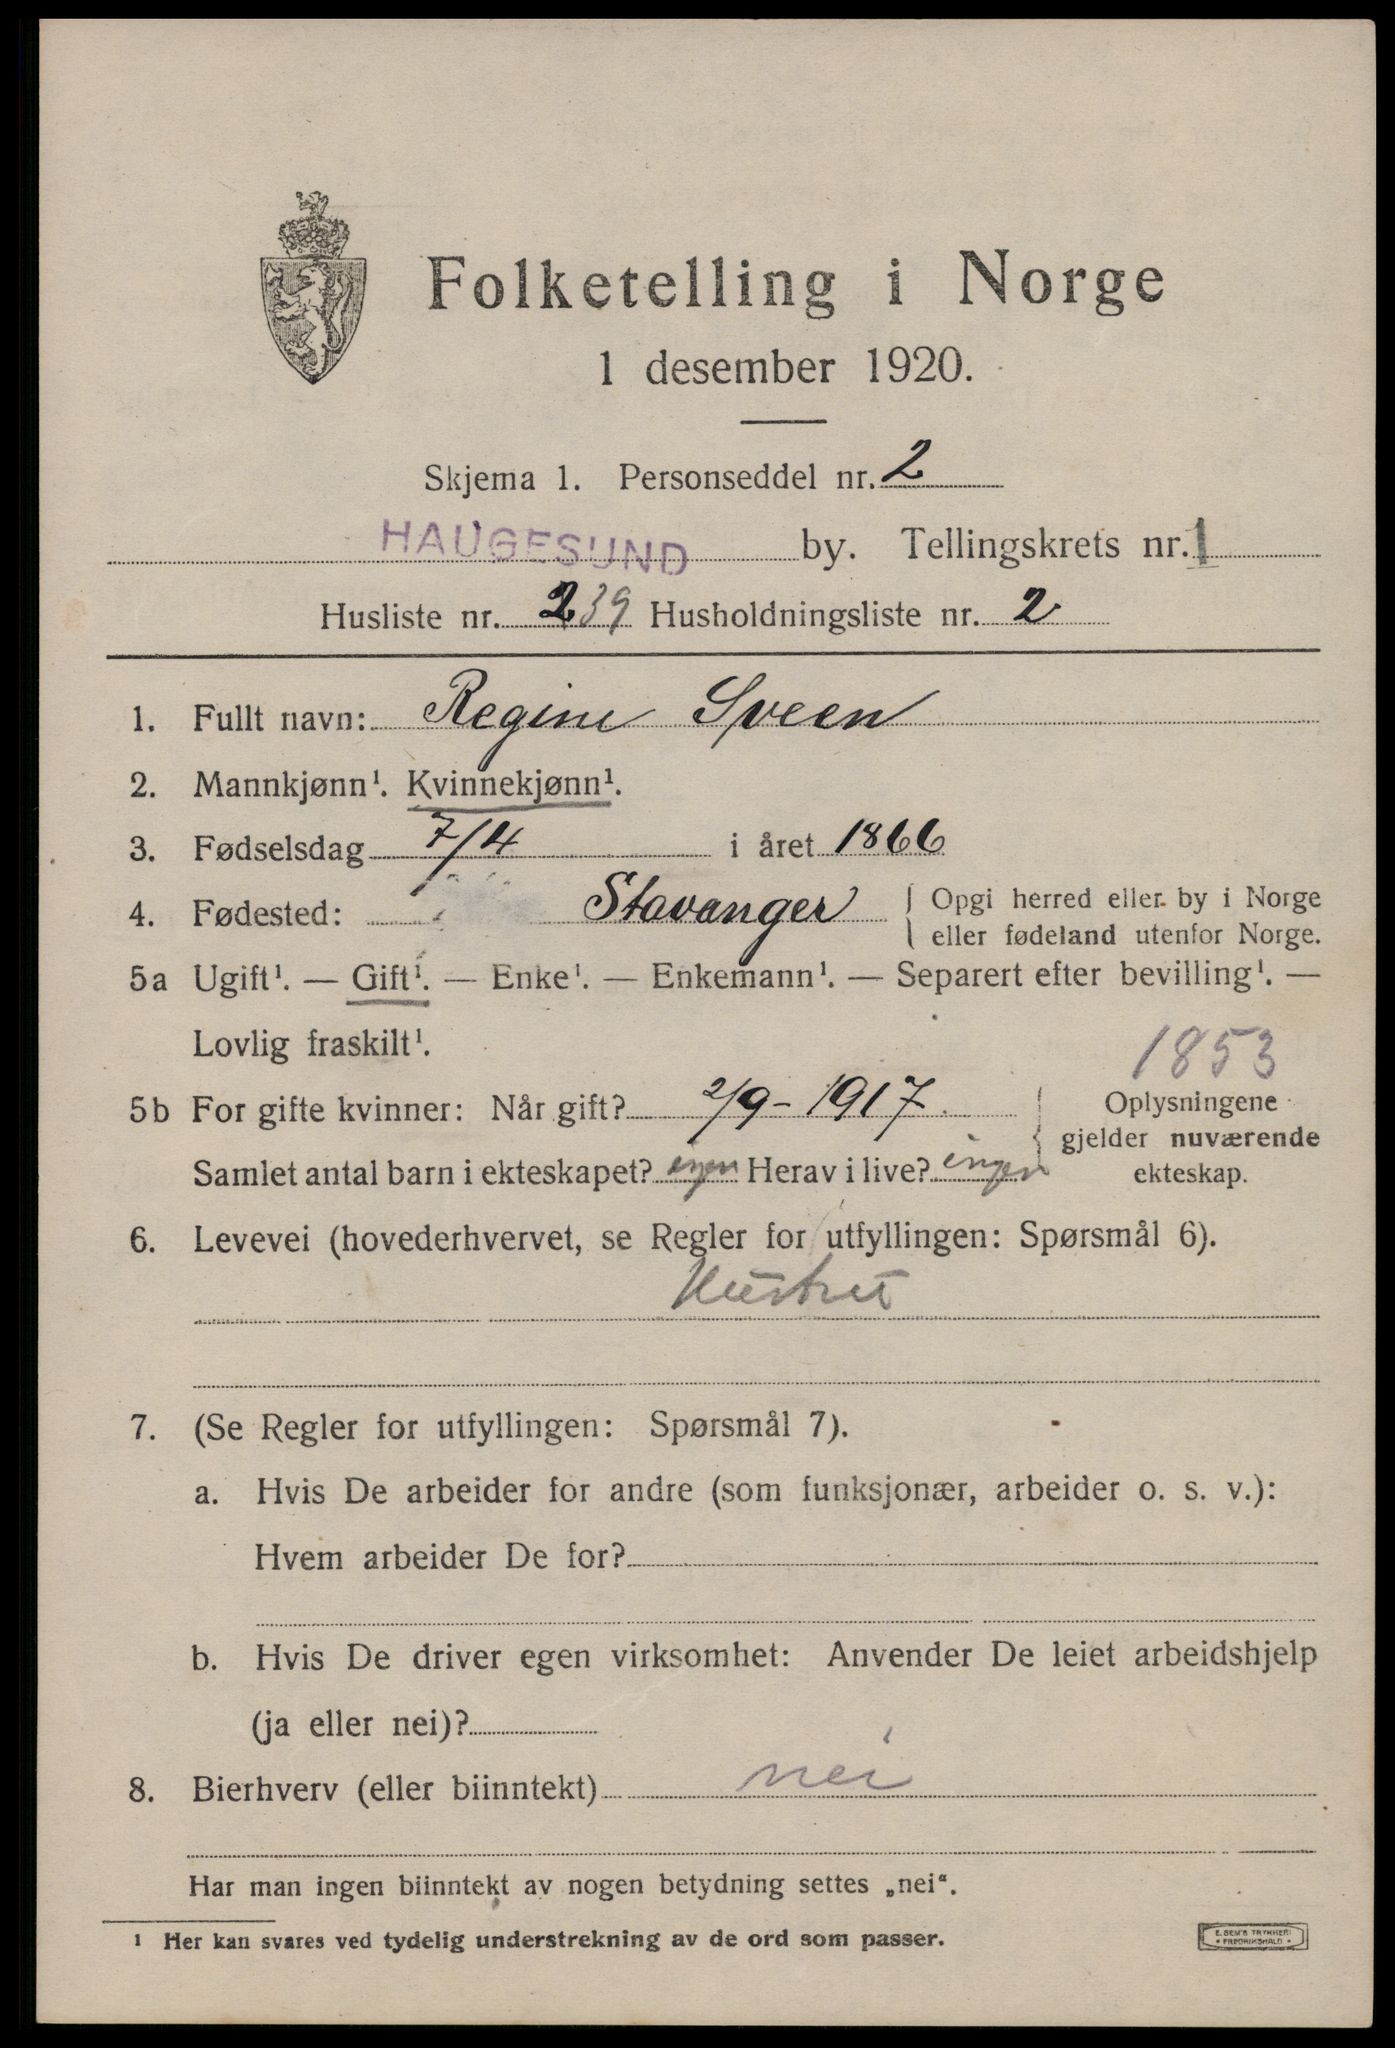 Folketelling i Norge
1 desember 1920.
Skjema 1. Personseddel nr. 2
HAUGESUND by. Tellingskrets nr. 1
Husliste nr. 239 Husholdningsliste nr. 2
1. Fullt navn: Regine Sveen
2. Mannkjønn¹. Kvinnekjønn¹.
3. Fødselsdag 7/4 i året 1866
4. Fødested: Stavanger { Opgi herred eller by i Norge
eller fødeland utenfor Norge.
5a Ugift¹. — Gift¹. — Enke¹. — Enkemann¹. — Separert efter bevilling¹. —
Lovlig fraskilt¹.
1853
5b For gifte kvinner: Når gift? 2/9 - 1917 { Oplysningene
gjelder nuværende
Samlet antal barn i ekteskapet? ingen Herav i live? ingen ekteskap.
6. Levevei (hovederhvervet, se Regler for utfyllingen: Spørsmål 6).
Hustru
7. (Se Regler for utfyllingen: Spørsmål 7).
a. Hvis De arbeider for andre (som funksjonær, arbeider o. s. v.):
Hvem arbeider De for?
b. Hvis De driver egen virksomhet: Anvender De leiet arbeidshjelp
(ja eller nei)?
8. Bierhverv (eller biinntekt) nei
Har man ingen biinntekt av nogen betydning settes „nei“.
¹ Her kan svares ved tydelig understrekning av de ord som passer.
E. SEM'S TRYKKERI
• FREDRIKSHALD •